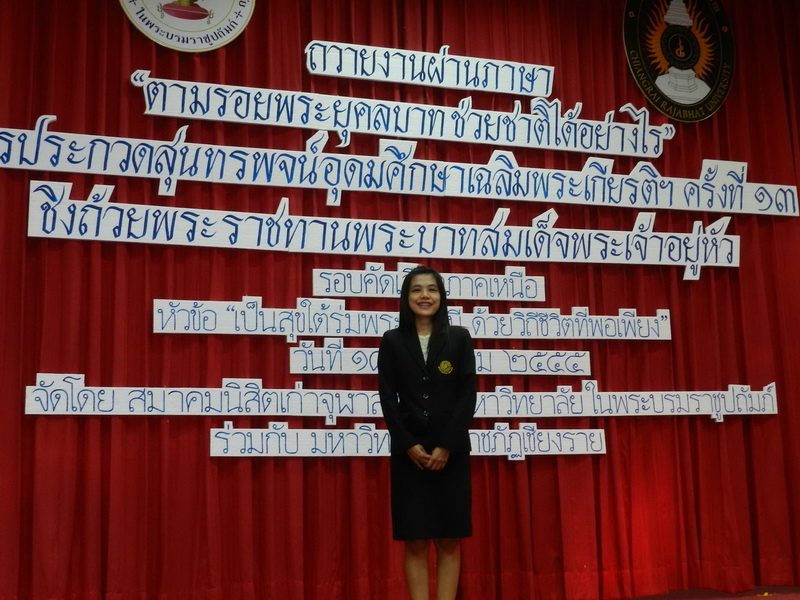 ในพระบรมราชูปถัมภ์
CHIANGRAI RAJABHAT UNIVERSITY
ถวายงานผ่านภาษา
“ตามรอยพระยุคลบาท ช่วยชาติได้อย่างไร”
รประกวดสุนทรพจน์อุดมศึกษาเฉลิมพระเกียรติฯ ครั้งที่ ๑๓
ชิงถ้วยพระราชทานพระบาทสมเด็จพระเจ้าอยู่หัว
รอบคัดเ ภาคเหนือ
หัวข้อ “เป็นสุขใต้ร่มพระ ด้วยวิถีชีวิตที่พอเพียง”
วันที่ ม ๒๕๕๕
จัดโดย สมาคมนิสิตเก่าจุฬาล หาวิทยาลัย ในพระบรมราชูปถัมภ์
ร่วมกับ มหาวิท าชภัฏเชียงราย